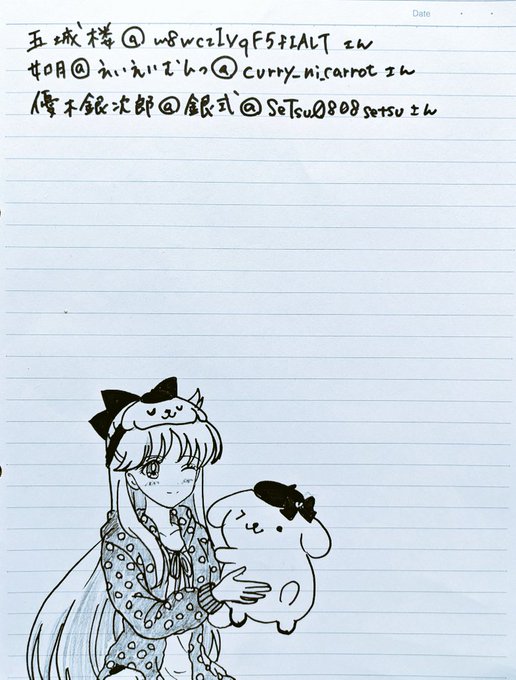 Date
五城楼@m8wczIVqF5fIALTさん
如月@えいえいむんっ@curry_ni_carrotさん
優木銀次郎@銀式@SeTsu0808setsuさん